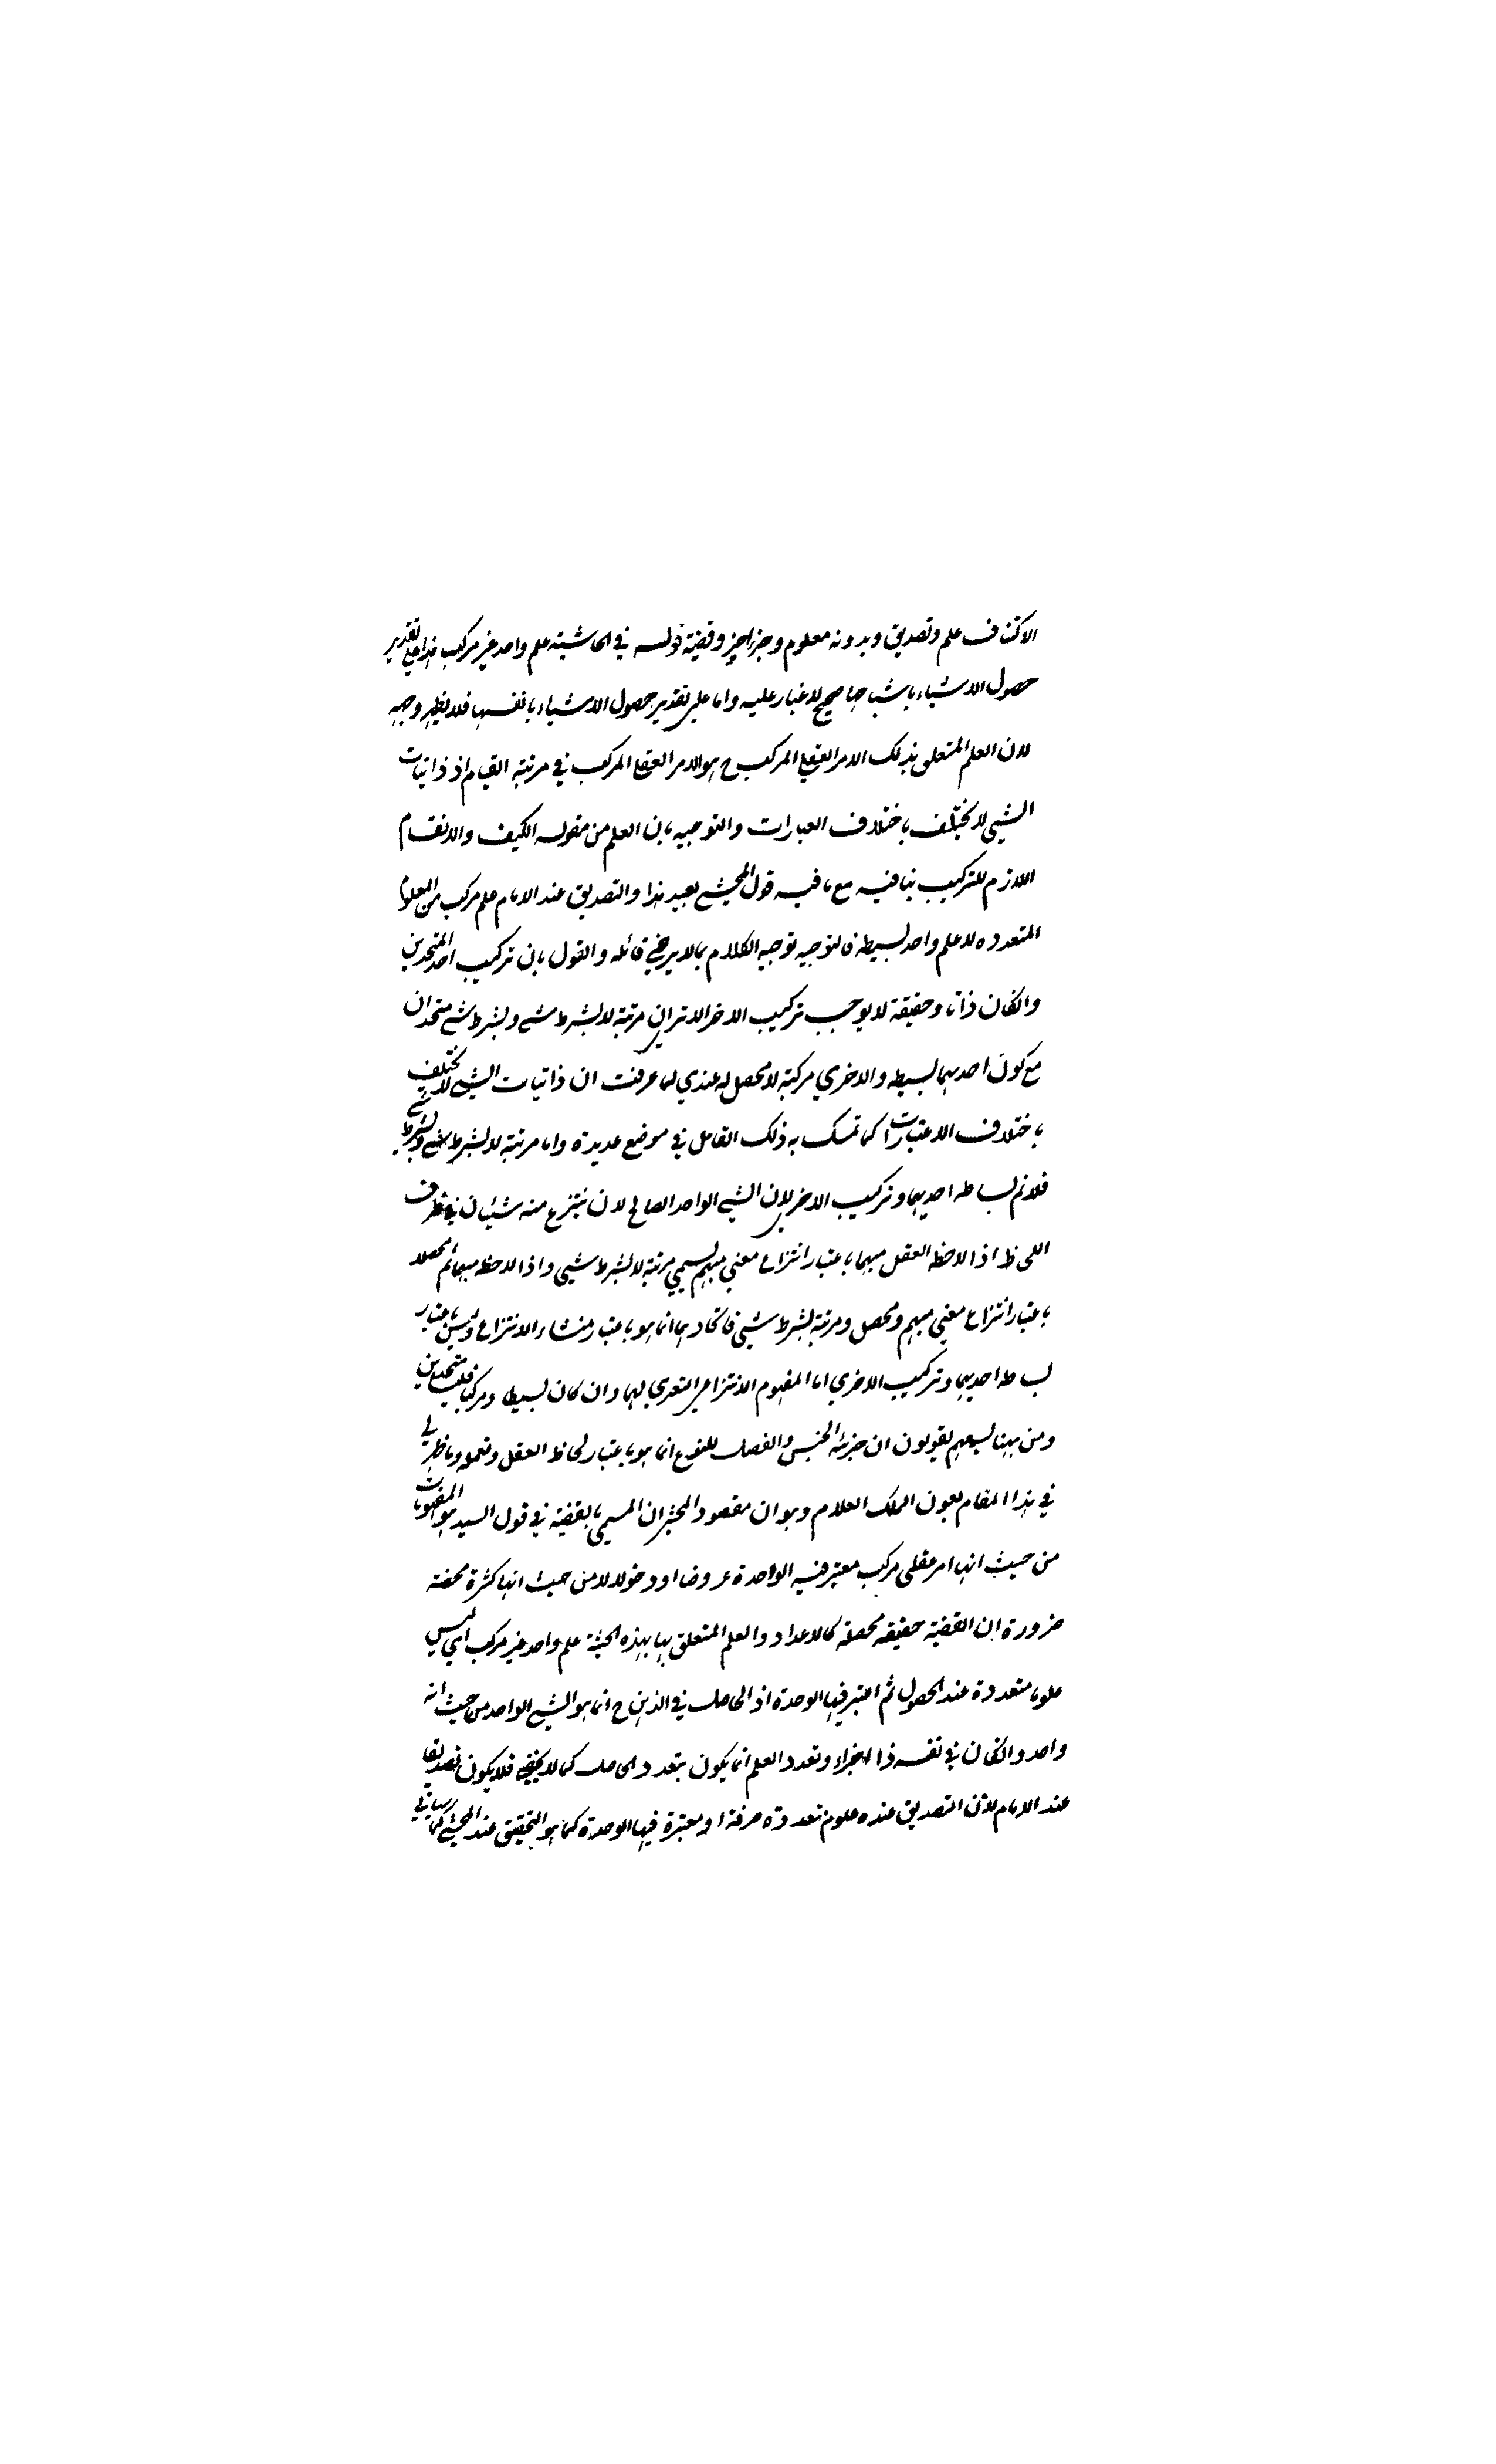 الاكتناف علم وتصديق وبدونه معلوم وجزء اخير وقضية قوله في الحاشية علم واحد غير مركب هذا على تقدير
حصول الاشياء باشباحها صحيح لا غبار عليه واما على تقدير حصول الاشياء بانفسها فلا يظهر وجهه
لان العلم المتعلق بذلك الامر العقلي المركب ح هو الامر العقلي المركب في مرتبة القيام اذ ذاتيات
الشيي لا يختلف باختلاف العبارات والتوجيه بان العلم من مقولة الكيف والانقسام
اللازم للتركيب ينافيه مع ما فيه قول المحشي بعيد هذا والتصديق عند الامام علم مركب من العلوم
المتعدده لا علم واحد بسيط فالتوجيه توجيه الكلام بما لا يرضي قائله والقول بان تركيب احد المتحدين
والكان ذاتا وحقيقة لا يوجب تركيب الاخر الا تر ان مرتبة لا بشرط شي وبشرط شي متحدان
مع كون احديهما بسيطه والاخري مركبة لا محصل له عندي لما عرفت ان ذاتيات الشيي لا يختلف
باختلاف الاعتبارات كما تمسك به ذلك القائل في موضع عديدة واما مرتبة لا بشرط شي وبشرط شي
فلا نم بساطه احديهما وتركيب الاخر لان الشي الواحد الصالح لان ينتزع منه شيئان في ظرف
اللحاظ اذا لاحظه العقل مبهما باعتبار انتزاع معني مبهم يسمي مرتبة لا بشرط شيي واذا لاحظه مبهما ثم محصلا
باعتبار انتزاع معني مبهم ومحصل ومرتبة بشرط شيي فاتحادهما انما هو باعتبار منشاء الانتزاع وليس باعتبار
بساطه احديهما وتركيب الاخري اما المفهوم الانتزاعي التعدي لهما وان كان بسيطا ومركبا فليسا متحدين
ومن ههنا تسمعهم يقولون ان جزئية الجنس والفصل للنوع انما هو باعتبار لحاظ العقل وتعمله وما ظهر لي
في هذا المقام بعون الملك العلام وهو ان مقصود المحشي ان المسمي بالقضية في قول السيد هو المفهومات
من حيث انها امر عقلي مركب معتبر فيه الواحدة عروضا او دخولا لا من حيث انها كثرة محضة
ضرورة ان القضية حقيقه محصلة كالاعداد والعلم المتعلق بها بهذه الحيثية علم واحد غير مركب اي ليس
علوما متعددة عند الحصول ثم اعتبر فيها الوحدة اذ الحاصل في الذهن ح انما هو الشيي الواحد من حيث انه
واحد والكان في نفسه ذا اجزاء وتعدد العلم انما يكون بتعدد الحاصل كما لا يخفي فلا يكون تصديقا
عند الامام لان التصديق عنده علوم متعددة صرفة او معتبرة فيها الوحدة كما هو التحقيق عند المحشي كما سياتي